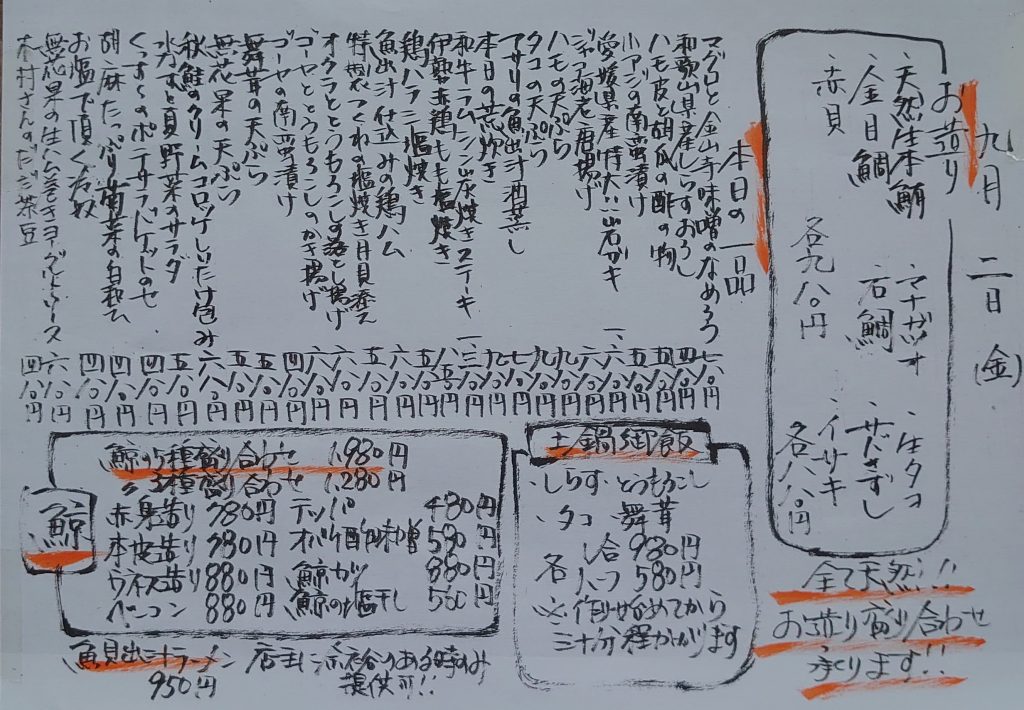 九月二日(金)
お造り
・天然生本鮪
・マナガツオ
・生タコ
・金目鯛
・石鯛
・サドきずし
・赤貝
・イサキ
各九八〇円
各八八〇円
全て天然!!
お造り盛り合わせ
承ります!!
本日の一品
マグロと金山寺味噌のなめろう 七八〇円
和歌山県産しらすおろし 四八〇円
ハモ皮と胡瓜の酢の物 五八〇円
小アジの南蛮漬け 六八〇円
愛媛県産特大!!岩ガキ
海老唐揚げ
ハモの天ぷら 九八〇円
タコの天ぷら 九八〇円
アサリの魚出汁酒蒸し 七八〇円
本日の荒炊き 九八〇円
和牛ラムシン炭焼きステーキ
伊勢赤鶏もも塩焼き
鶏ハラミ塩焼き 六八〇円
魚出汁仕込みの鶏ハム 五八〇円
特製つくねの塩焼き月見添え 六八〇円
オクラととうもろこしの落とし揚げ 六八〇円
ゴーヤととうもろこしのかき揚げ 六八〇円
ゴーヤの南蛮漬け 四八〇円
舞茸の天ぷら 五八〇円
無花果の天ぷら 五八〇円
秋鮭のクリームコロッケしいたけ包み 六八〇円
水なすと夏野菜のサラダ 五八〇円
のポテサラバケットのせ 四八〇円
胡麻たっぷり菊菜の白和え 四八〇円
お塩で頂く冷奴 四八〇円
無花果の生ハム巻きヨーグルトソース 六八〇円
木村さんのだだ茶豆 四八〇円
土鍋御飯
・しらすとうもろこし
・タコ 舞茸
各 一合 980円
ハーフ 580円
※作り始めてから
三十分程かかります
鯨
鯨の5種盛り合わせ 1,980円
〃3種盛り合わせ 1,280円
赤身造り 780円 テッパ 480円
本皮造り 780円 オバケ酢味噌 580円
ウネス造り 880円 鯨カツ 880円
ベーコン 880円 鯨の塩干し 580円
魚貝出汁ラーメン 店主に余裕のある時のみ
950円 提供可!!